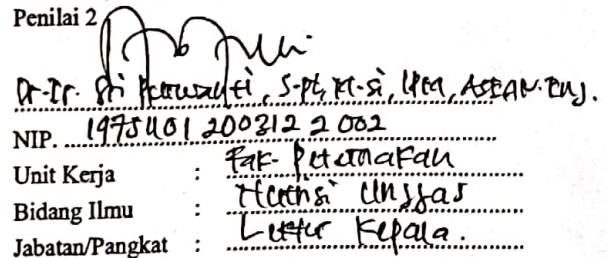 Penilai 2
Dr. Ir. Sri Purwanti, S.Pt, M.si, IPM, ASEAN. Eng.
NIP. 19751101 200312 2 002
Unit Kerja : Fak. Peternakan
Bidang Ilmu : Nutrisi Unggas
Jabatan/Pangkat : Lektor Kepala.